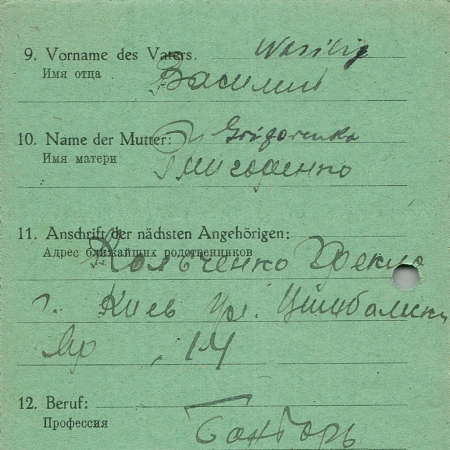 9. Vorname des Vaters. Wasilij
Имя отца Василий
10. Name der Mutter: Grigorenko
Имя матери Григоренко
11. Anschrift der nächsten Angehörigen:
Адрес ближайших родственников
Кольченко Фекла
г. Киев ул. Цимбалски
Яр, 14
12. Beruf:
Профессия